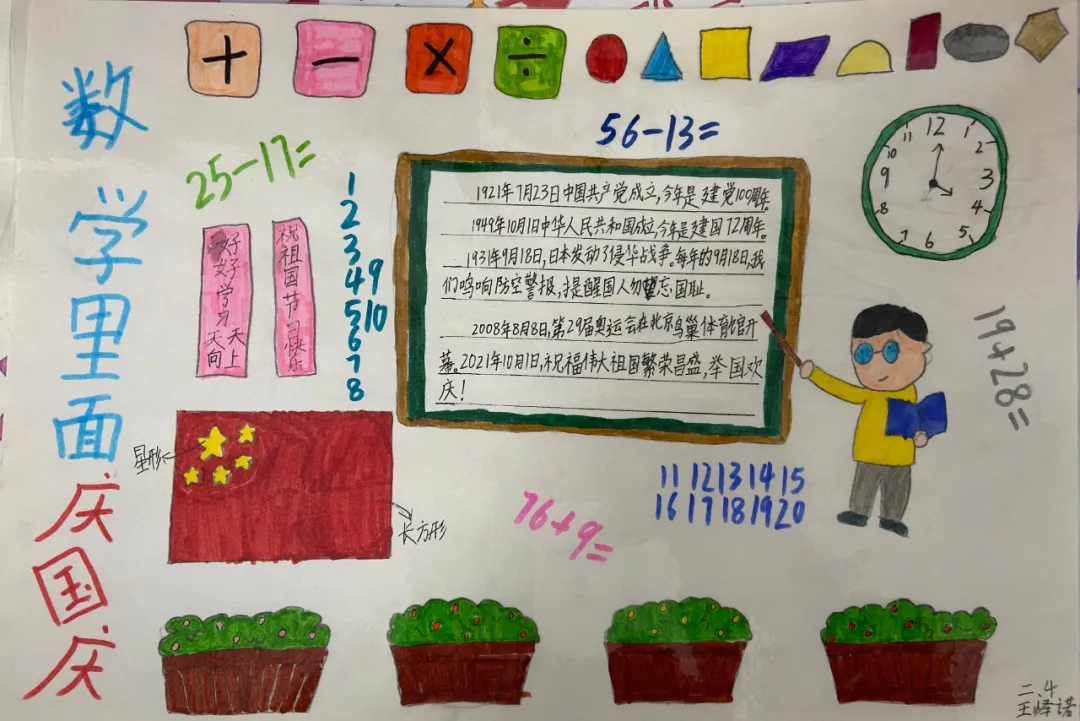 数学里面庆国庆
+ - × ÷
56-13=
25-17=
1
2
3
4
5
6
7
8
9
10
好好学习
天天向上
祝祖国节日快乐
1921年7月23日中国共产党成立,今年是建党100周年。
1949年10月1日中华人民共和国成立,今年是建国72周年。
1931年9月18日,日本发动了侵华战争。每年的9月18日,我
们鸣响防空警报,提醒国人勿忘国耻。
2008年8月8日,第29届奥运会在北京鸟巢体育馆开
幕。2021年10月1日,祝福伟大祖国繁荣昌盛,举国欢
庆!
12
1
2
3
4
5
6
7
8
9
10
11
19+28=
星形
长方形
11 12 13 14 15
16 17 18 19 20
76+9=
二.4
王怿诺